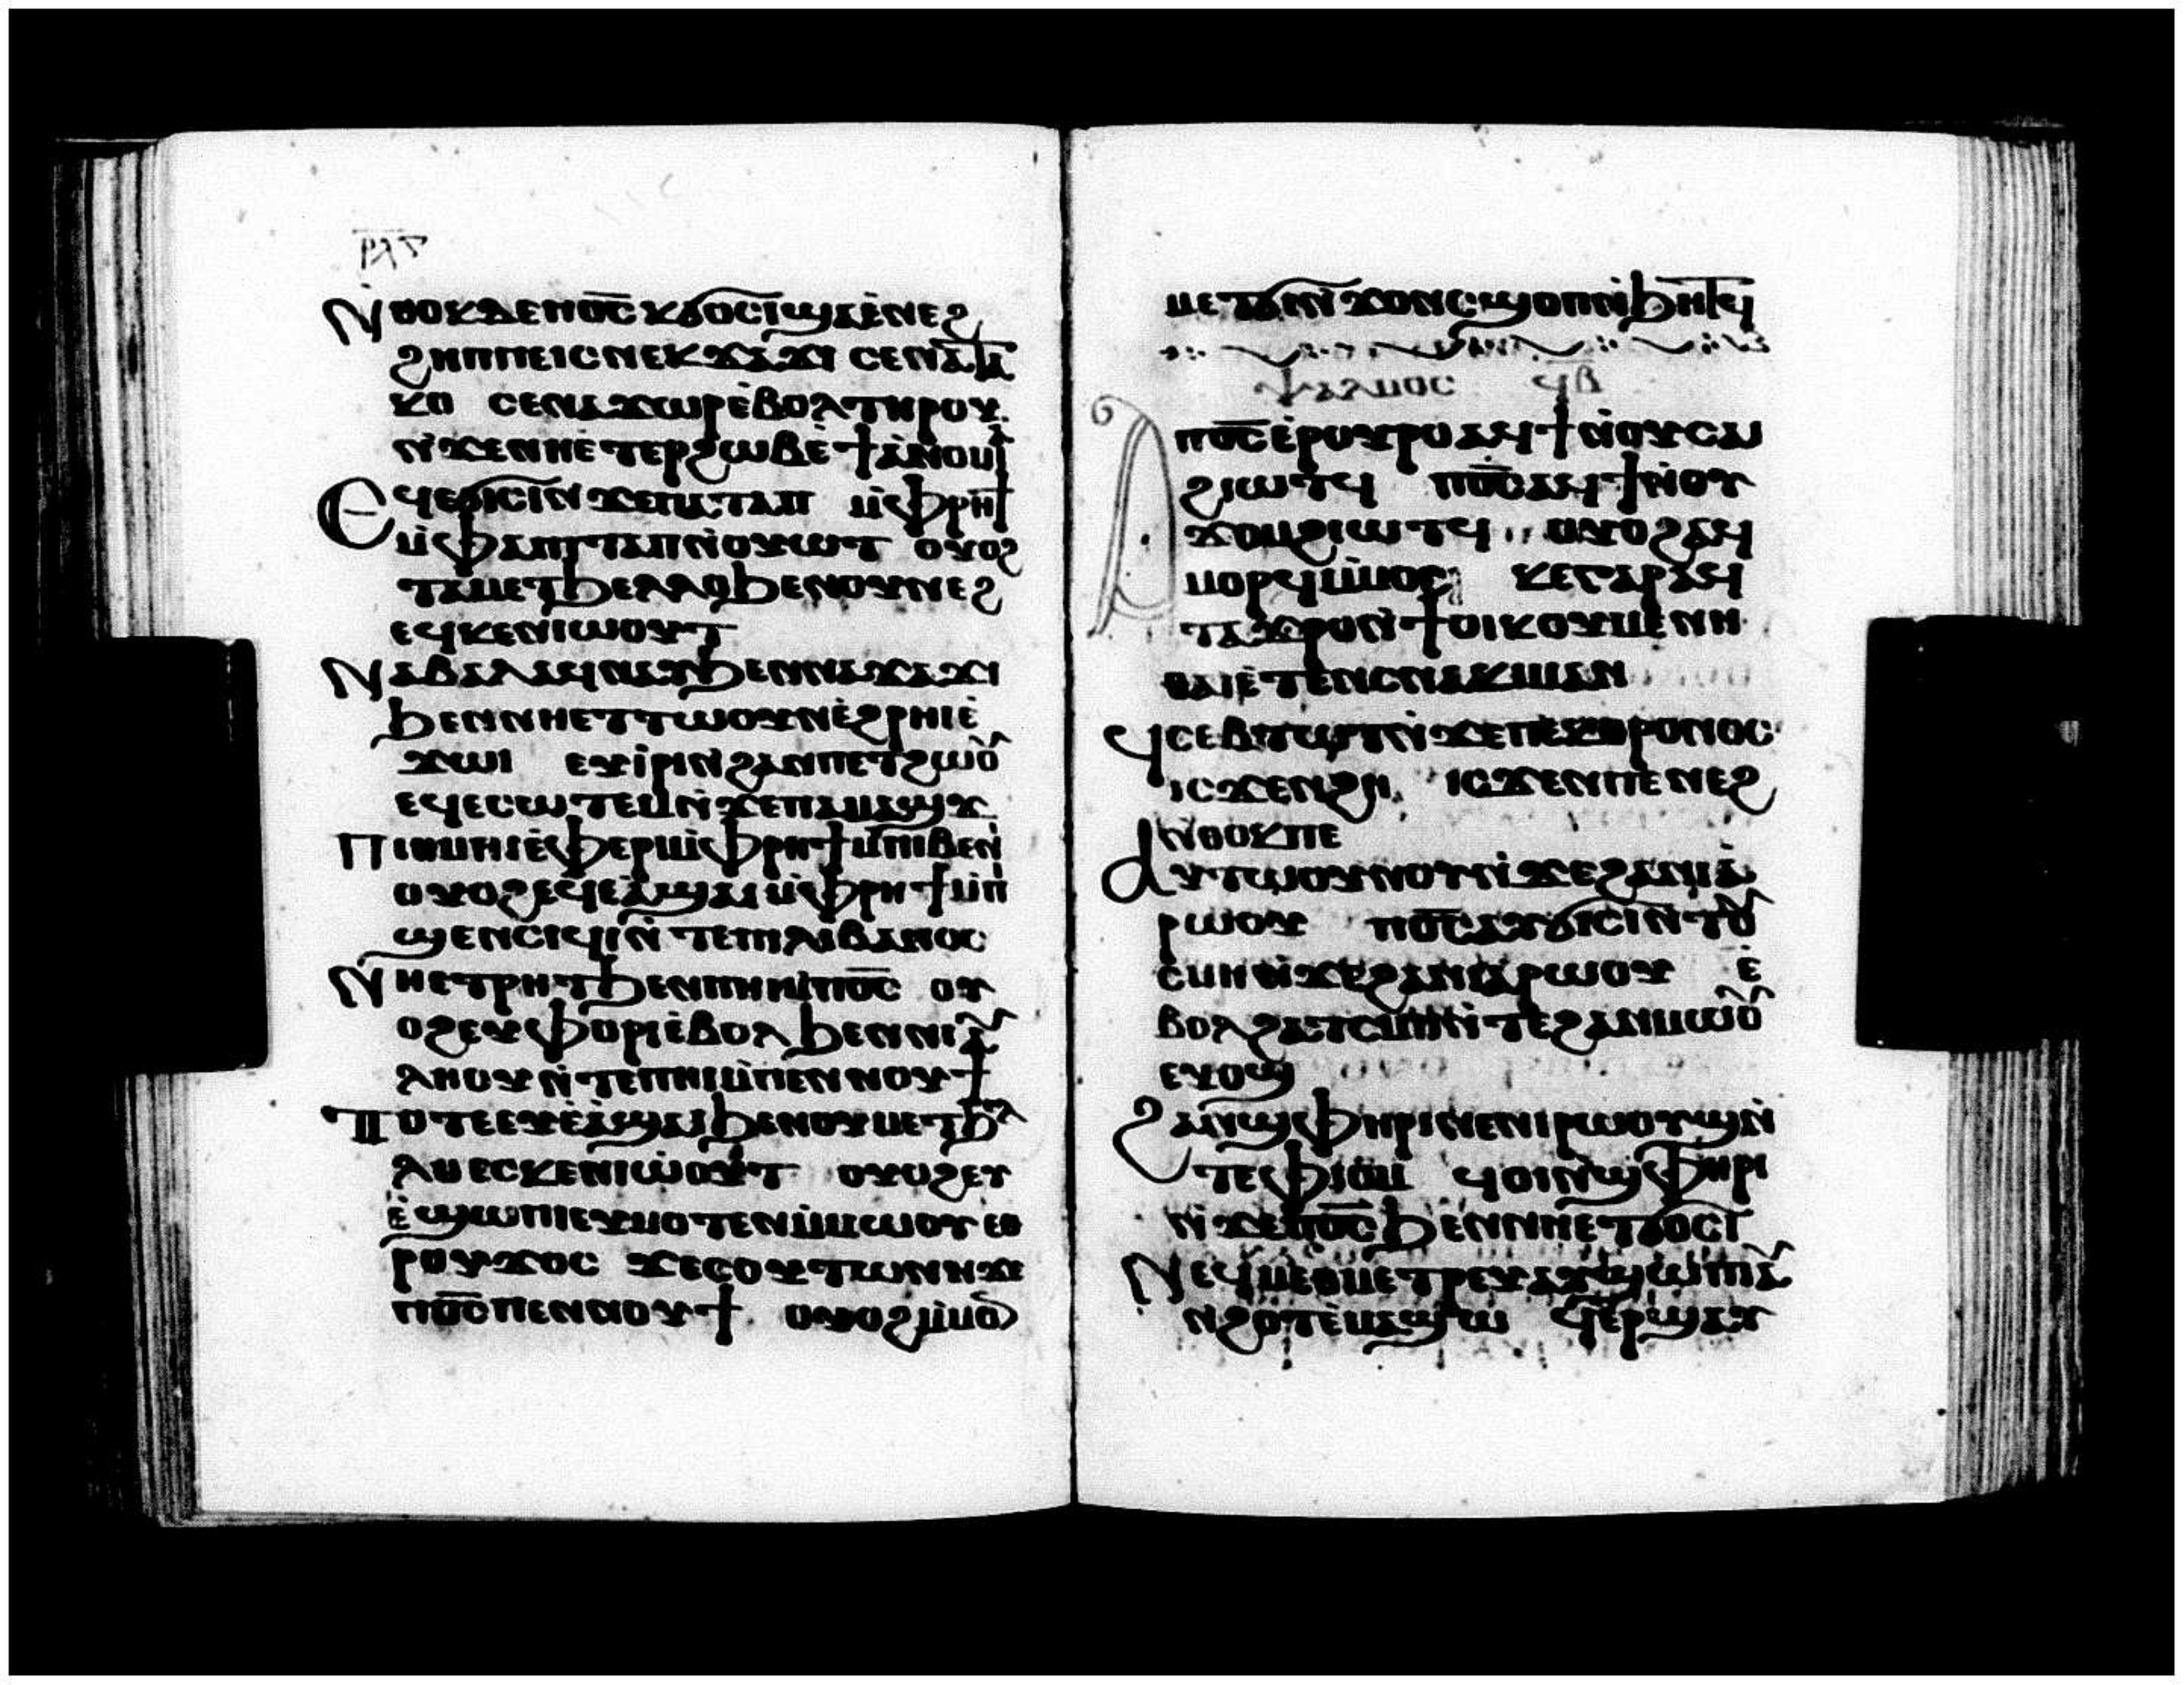 ⲣⲗⲋ
ⲛ̇ⲑⲟⲕ ⲇⲉ ⲡⲟ̅ⲥ̅ ⲕϭⲟⲥⲓ ϣⲁ ⲉ̀ⲛⲉϩ
ϩⲏⲡⲡⲉ ⲓⲥ ⲛⲉⲕϫⲁϫⲓ ⲥⲉⲛⲁⲧⲁ
ⲕⲟ ⲥⲉⲛⲁϫⲱⲣ ⲉ̀ⲃⲟⲗ ⲧⲏⲣⲟⲩ
ⲛ̀ϫⲉ ⲛⲏⲉ̀ⲧⲉⲣϩⲱⲃ ⲉ̀ϯⲁ̀ⲛⲟⲙⲓ̀ⲁ
ⲉϥⲉϭⲓⲥⲓ ⲛ̀ϫⲉ ⲡⲁⲧⲁⲡ ⲙ̀ⲫⲣⲏϯ
ⲙ̀ⲫⲁ ⲡⲓⲧⲁⲡ ⲛ̀ⲟⲩⲱⲧ ⲟⲩⲟϩ
ⲧⲁⲙⲉⲧϧⲉⲗⲗⲟ ϧⲉⲛ ⲟⲩⲛⲉϩ
ⲉϥⲕⲉⲛⲓⲱⲟⲩⲧ
ⲛⲁⲃⲁⲗ ⲁϥⲛⲁⲩ ϧⲉⲛ ⲛⲁϫⲁϫⲓ
ϧⲉⲛ ⲛⲏⲉⲧⲧⲱⲟⲩⲛ ⲉ̀ϩⲣⲏⲓ ⲉ̀
ϫⲱⲓ ⲉⲩⲓ̀ⲣⲓ ⲛ̀ϩⲁⲛⲡⲉⲧϩⲱⲟⲩ
ⲉϥⲉⲥⲱⲧⲉⲙ ⲛ̀ϫⲉ ⲡⲁⲙⲁϣϫ
ⲡⲓⲑⲙⲏⲓ ⲉ̀ϥⲉⲣ ⲙ̀ⲫⲣⲏϯ ⲙ̀ⲡⲓⲃⲉⲛⲓ
ⲟⲩⲟϩ ⲉϥⲉⲁ̀ϣⲁⲓ ⲙ̀ⲫⲣⲏϯ ⲙ̀ⲡⲓ
ϣⲉⲛⲥⲓϥⲓ ⲛ̀ⲧⲉ ⲡⲓⲗⲓⲃⲁⲛⲟⲥ
ⲛⲏⲉⲧⲣⲏⲧ ϧⲉⲛ ⲡⲏⲓ ⲙ̀ⲡⲟ̅ⲥ̅ ⲟⲩ
ⲟϩ ⲉⲩⲫⲟⲣⲓ ⲉ̀ⲃⲟⲗ ϧⲉⲛ ⲛⲓⲁⲩ
ⲗⲏⲟⲩ ⲛ̀ⲧⲉ ⲡⲏⲓ ⲙ̀ⲡⲉⲛⲛⲟⲩϯ
ⲧⲟⲧⲉ ⲉⲩⲉ̀ⲁ̀ϣⲁⲓ ϧⲉⲛ ⲟⲩⲙⲉⲧϧⲉⲗ
ⲗⲱ ⲉⲥⲕⲉⲛⲓⲱⲟⲩⲧ ⲟⲩⲟϩ ⲉⲩ
ⲉ̀ϣⲱⲡⲓ ⲉⲩⲙⲟⲧⲉⲛ ⲙ̀ⲙⲱⲟⲩ ⲉⲑ
ⲣⲟⲩϫⲟⲥ ϫⲉ ⲥⲟⲩⲧⲱⲛ ⲛ̀ϫⲉ
ⲡⲟ̅ⲥ̅ ⲡⲉⲛⲛⲟⲩϯ ⲟⲩⲟϩ ⲙ̀ⲙⲟⲛ
ⲙⲉⲧϭⲓ ⲛ̀ϫⲟⲛⲥ ϣⲟⲡ ⲛ̀ϧⲏⲧϥ
ⲯⲁⲗⲙⲟⲥ ϥⲃ
ⲁⲡⲟ̅ⲥ̅ ⲉⲣⲟⲩⲣⲟ ⲁϥϯ ⲛ̀ⲟⲩⲥⲁⲓ
ϩⲓⲱⲧϥ ⲡⲟ̅ⲥ̅ ⲁϥϯ ⲛ̀ⲟⲩ
ϫⲟⲙ ϩⲓⲱⲧϥ ⲟⲩⲟϩ ⲁϥ
ⲙⲟⲣϥ ⲙ̀ⲙⲟⲥ ⲕⲉ ⲅⲁⲣ ⲁϥ
ⲧⲁϫⲣⲟ ⲛ̀ϯⲟⲓⲕⲟⲩⲙⲉⲛⲏ
ⲑⲁⲓ ⲉ̀ⲧⲉⲛⲥⲛⲁⲕⲓⲙ ⲁⲛ
ϥⲥⲉⲃⲧⲱⲧ ⲛ̀ϫⲉ ⲡⲉⲕⲑⲣⲟⲛⲟⲥ
ⲓⲥϫⲉⲛ ϩⲏ ⲓⲥϫⲉⲛ ⲡⲉⲛⲉϩ
ⲛ̀ⲑⲟⲕ ⲡⲉ
ⲁⲩⲧⲱⲟⲩⲛⲟⲩ ⲛ̀ϫⲉ ϩⲁⲛⲓⲁ
ⲣⲱⲟⲩ ⲡⲟ̅ⲥ̅ ⲁⲩϭⲓⲥⲓ ⲛ̀ⲧⲟⲩ
ⲥⲙⲏ ⲛ̀ϫⲉ ϩⲁⲛⲓⲁⲣⲱⲟⲩ ⲉ̀
ⲃⲟⲗ ϩⲁ ⲧⲥⲙⲏ ⲛ̀ⲧⲉ ϩⲁⲛⲙⲱⲟⲩ
ⲉⲩⲟϣ
ϩⲁⲛϣⲫⲏⲣⲓ ⲛⲉ ⲛⲓⲣⲱⲟⲩϣ ⲛ̀
ⲧⲉ ⲫⲓⲟⲙ ϥⲟⲓ ⲛ̀ϣⲫⲏⲣⲓ
ⲛ̀ϫⲉ ⲡⲟ̅ⲥ̅ ϧⲉⲛ ⲛⲏⲉⲧϭⲟⲥⲓ
ⲛⲉϥⲙⲉⲑⲙⲉⲧⲣⲉⲩ ⲁⲩϣⲱⲡⲓ ⲉⲩ
ⲛϩⲟⲧ ⲉ̀ⲙⲁϣⲱ ϥⲉⲣϣⲁⲩ